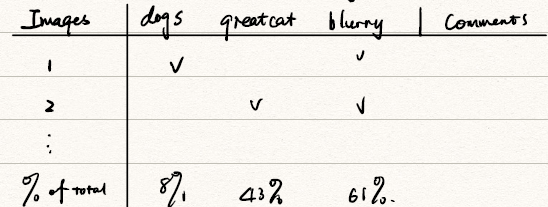 Images dogs greatcat blurry Comments
1 ✓ ✓
2 ✓ ✓
⋮
% of total 8% 43% 61%.